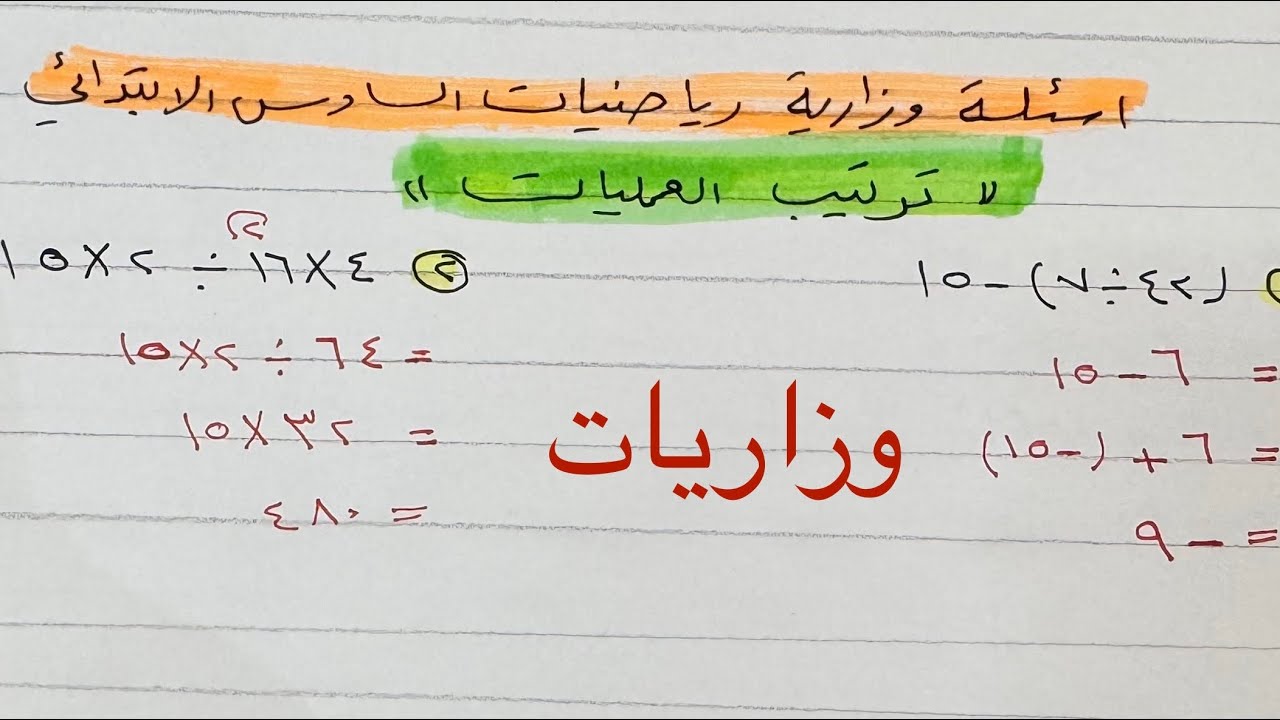 اسئلة وزارية رياضيات السادس الابتدائي
" ترتيب العمليات "
(٤٢ ÷ ٧) − ١٥
= ٦ − ١٥
= ٦ + (−١٥)
= − ٩
وزاريات
٢
② ٤ × ١٦ ÷ ٢ × ١٥
= ٦٤ ÷ ٢ × ١٥
= ٣٢ × ١٥
= ٤٨٠